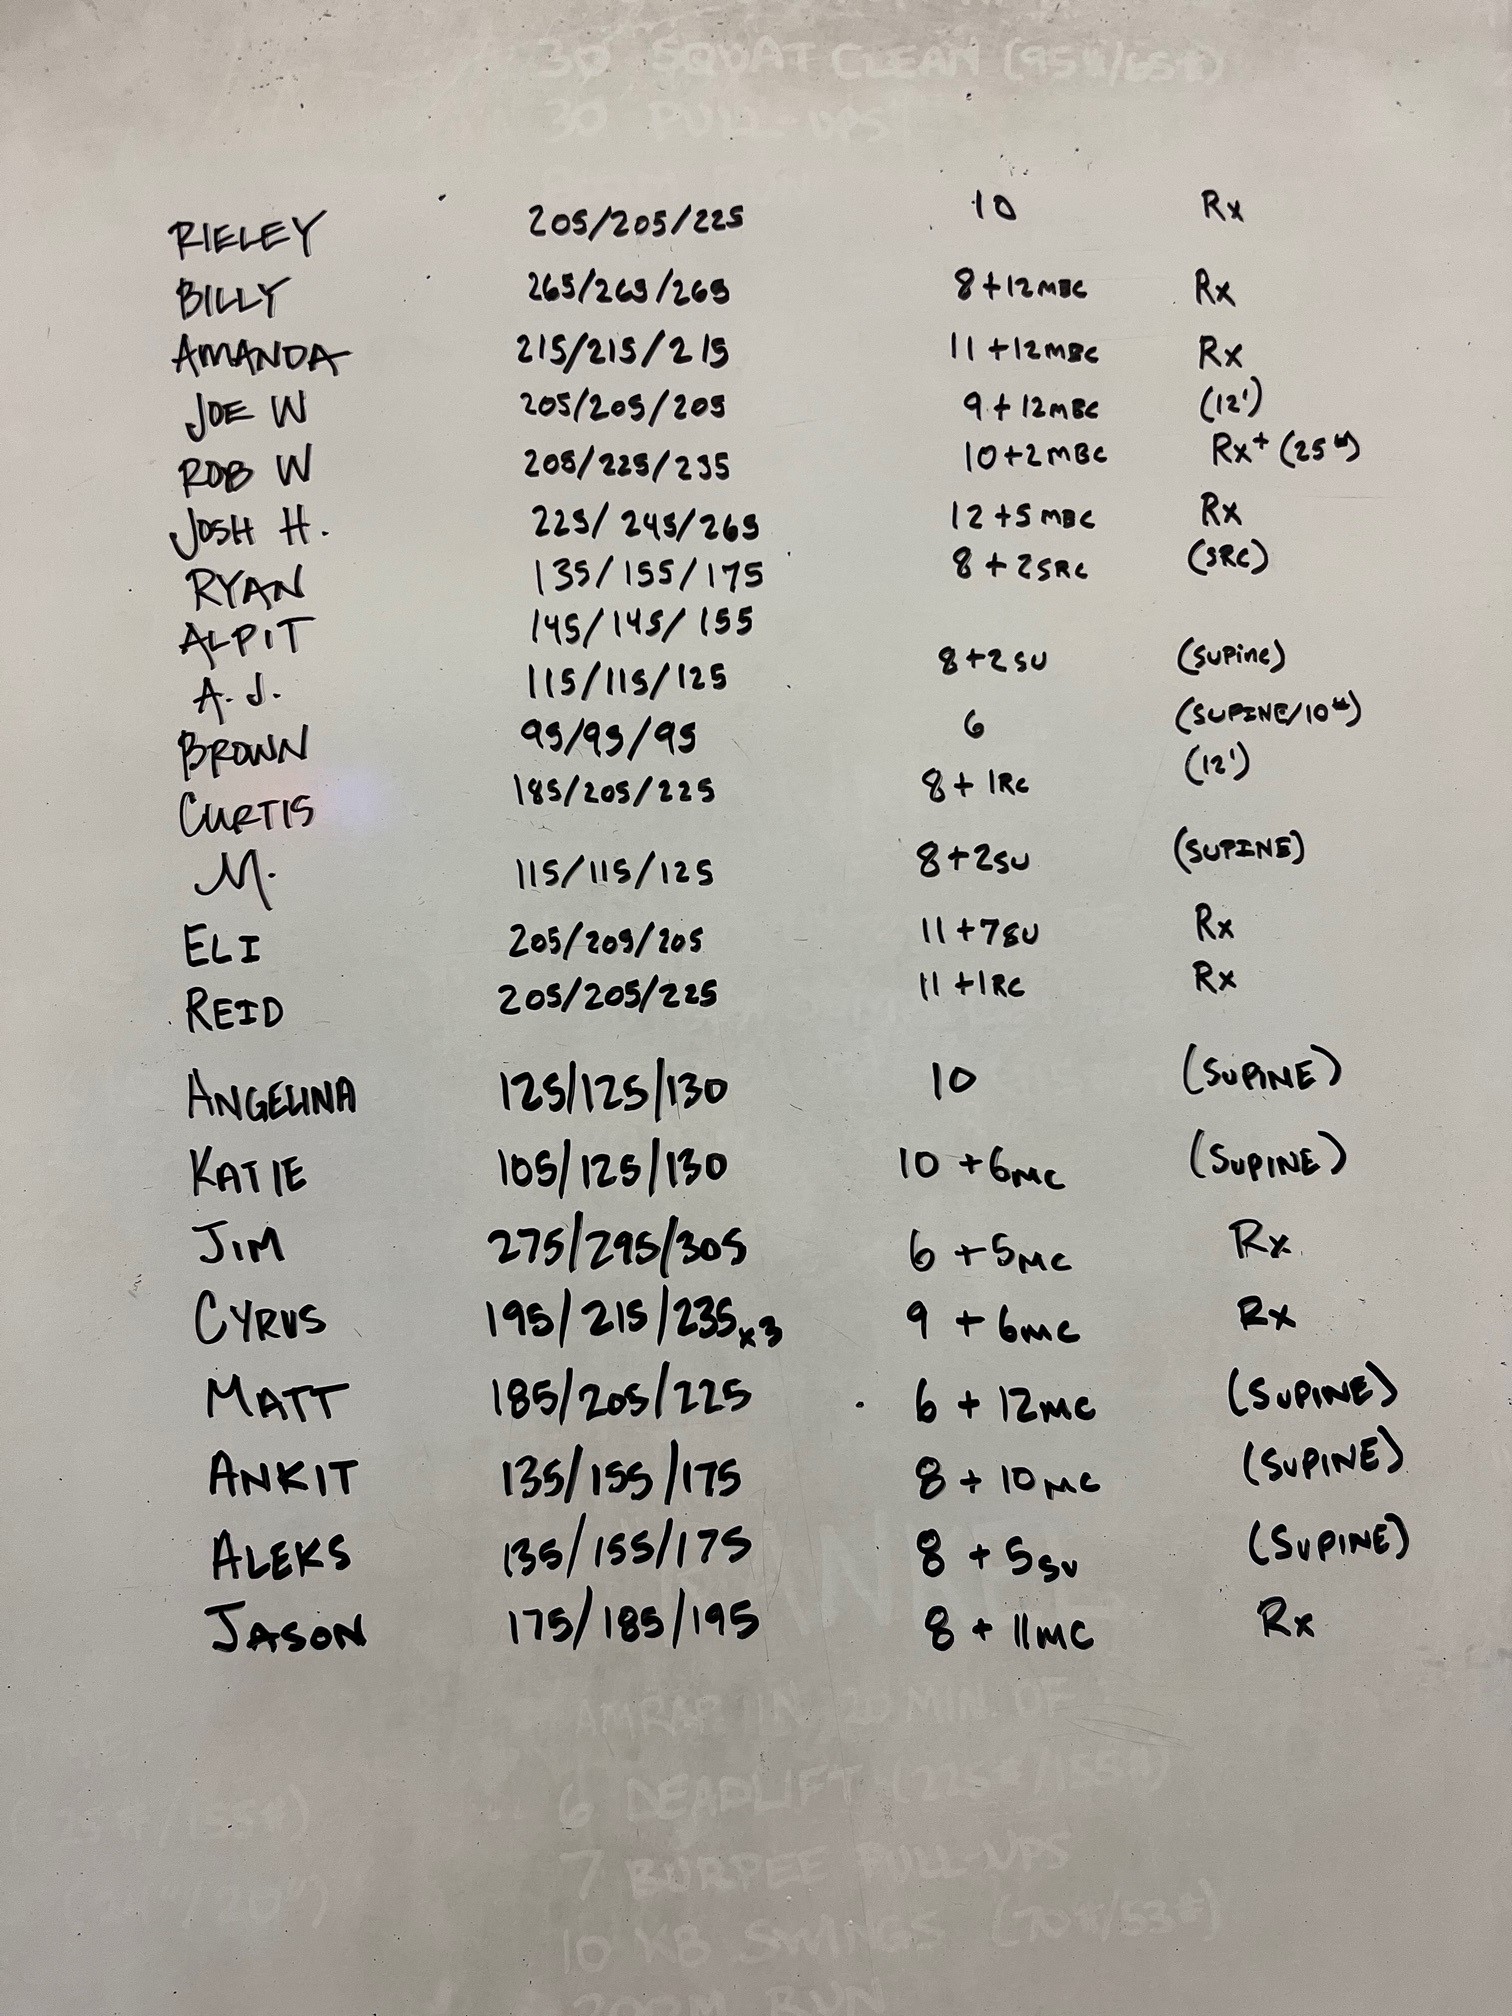 30 SQUAT CLEAN (95#/65#)
30 PULL-UPS
RIELEY 205/205/225 10 Rx
BILLY 265/265/265 8+12MBC Rx
AMANDA 215/215/215 11+12MBC Rx
JOE W 205/205/205 9+12MBC (12')
ROB W 205/225/235 10+2MBC Rx+ (25#)
JOSH H. 225/245/265 12+5MBC Rx
RYAN 135/155/175 8+2SRC (SRC)
ALPIT 145/145/155
A.J. 115/115/125 8+2SU (SUPINE)
BROWN 95/95/95 6 (SUPINE/10#)
CURTIS 185/205/225 8+1RC (12')
M. 115/115/125 8+2SU (SUPINE)
ELI 205/205/205 11+7SU Rx
REID 205/205/225 11+1RC Rx
ANGELINA 125/125/130 10 (SUPINE)
KATIE 105/125/130 10+6MC (SUPINE)
JIM 275/295/305 6+5MC Rx
CYRUS 195/215/235x3 9+6MC Rx
MATT 185/205/225 6+12MC (SUPINE)
ANKIT 135/155/175 8+10MC (SUPINE)
ALEKS 135/155/175 8+5SU (SUPINE)
JASON 175/185/195 8+11MC Rx
AMRAP IN 20 MIN. OF
6 DEADLIFT (225#/155#)
7 BURPEE PULL-UPS
10 KB SWINGS (70#/53#)
200M RUN